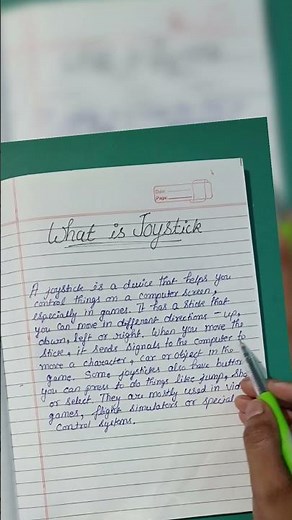 Date
Page
What is Joystick
A joystick is a device that helps you
control things on a computer screen,
especially in games. It has a stick that
you can move in different directions - up,
down, left or right. When you move the
stick, it sends signals to the computer to
move a character, car or object in the
game. Some joysticks also have button
you can press to do things like jump, sho
or select. They are mostly used in vid
games, flight simulators or special
control systems.